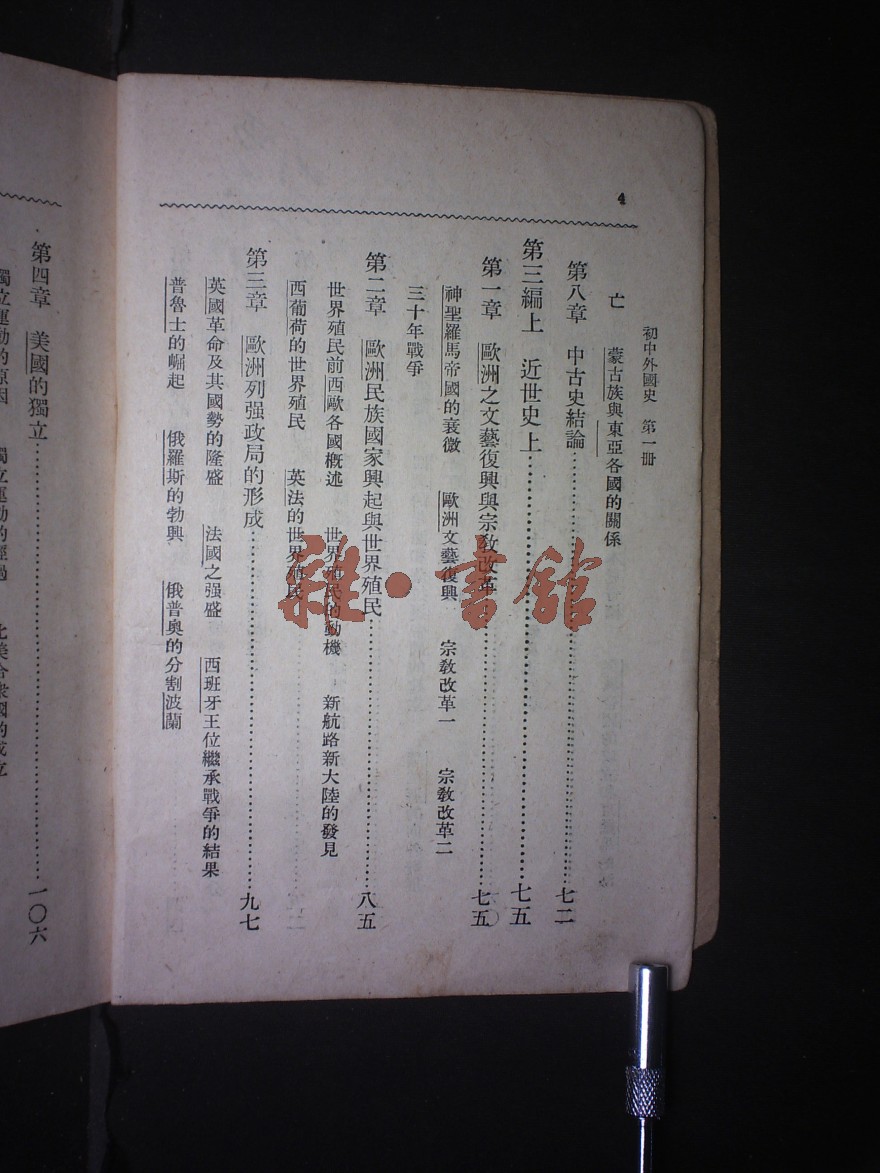 4
初中外國史　第一冊
亡　蒙古族與東亞各國的關係
第八章　中古史結論……七二
第三編上　近世史上……七五
第一章　歐洲之文藝復興與宗教改革……七五
神聖羅馬帝國的衰微　歐洲文藝復興　宗教改革一　宗教改革二
三十年戰爭
第二章　歐洲民族國家興起與世界殖民……八五
世界殖民前西歐各國概述　世界殖民的動機　新航路新大陸的發見
西葡荷的世界殖民　英法的世界殖民
第三章　歐洲列强政局的形成……九七
英國革命及其國勢的隆盛　法國之强盛　西班牙王位繼承戰爭的結果
普魯士的崛起　俄羅斯的勃興　俄普奧的分割波蘭
第四章　美國的獨立……一〇六
獨立運動的原因　獨立運動的經過　北美合衆國的成立
雜·書館